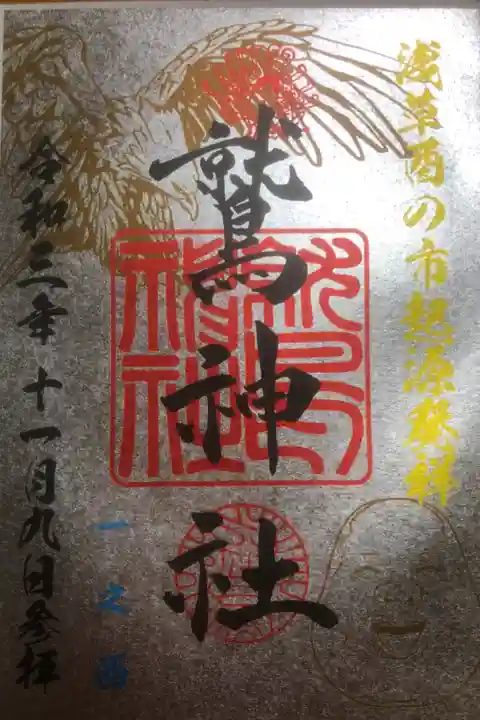 浅草酉の市起源発祥
鷲神社
鷲神社
一之酉
令和三年十一月九日参拝